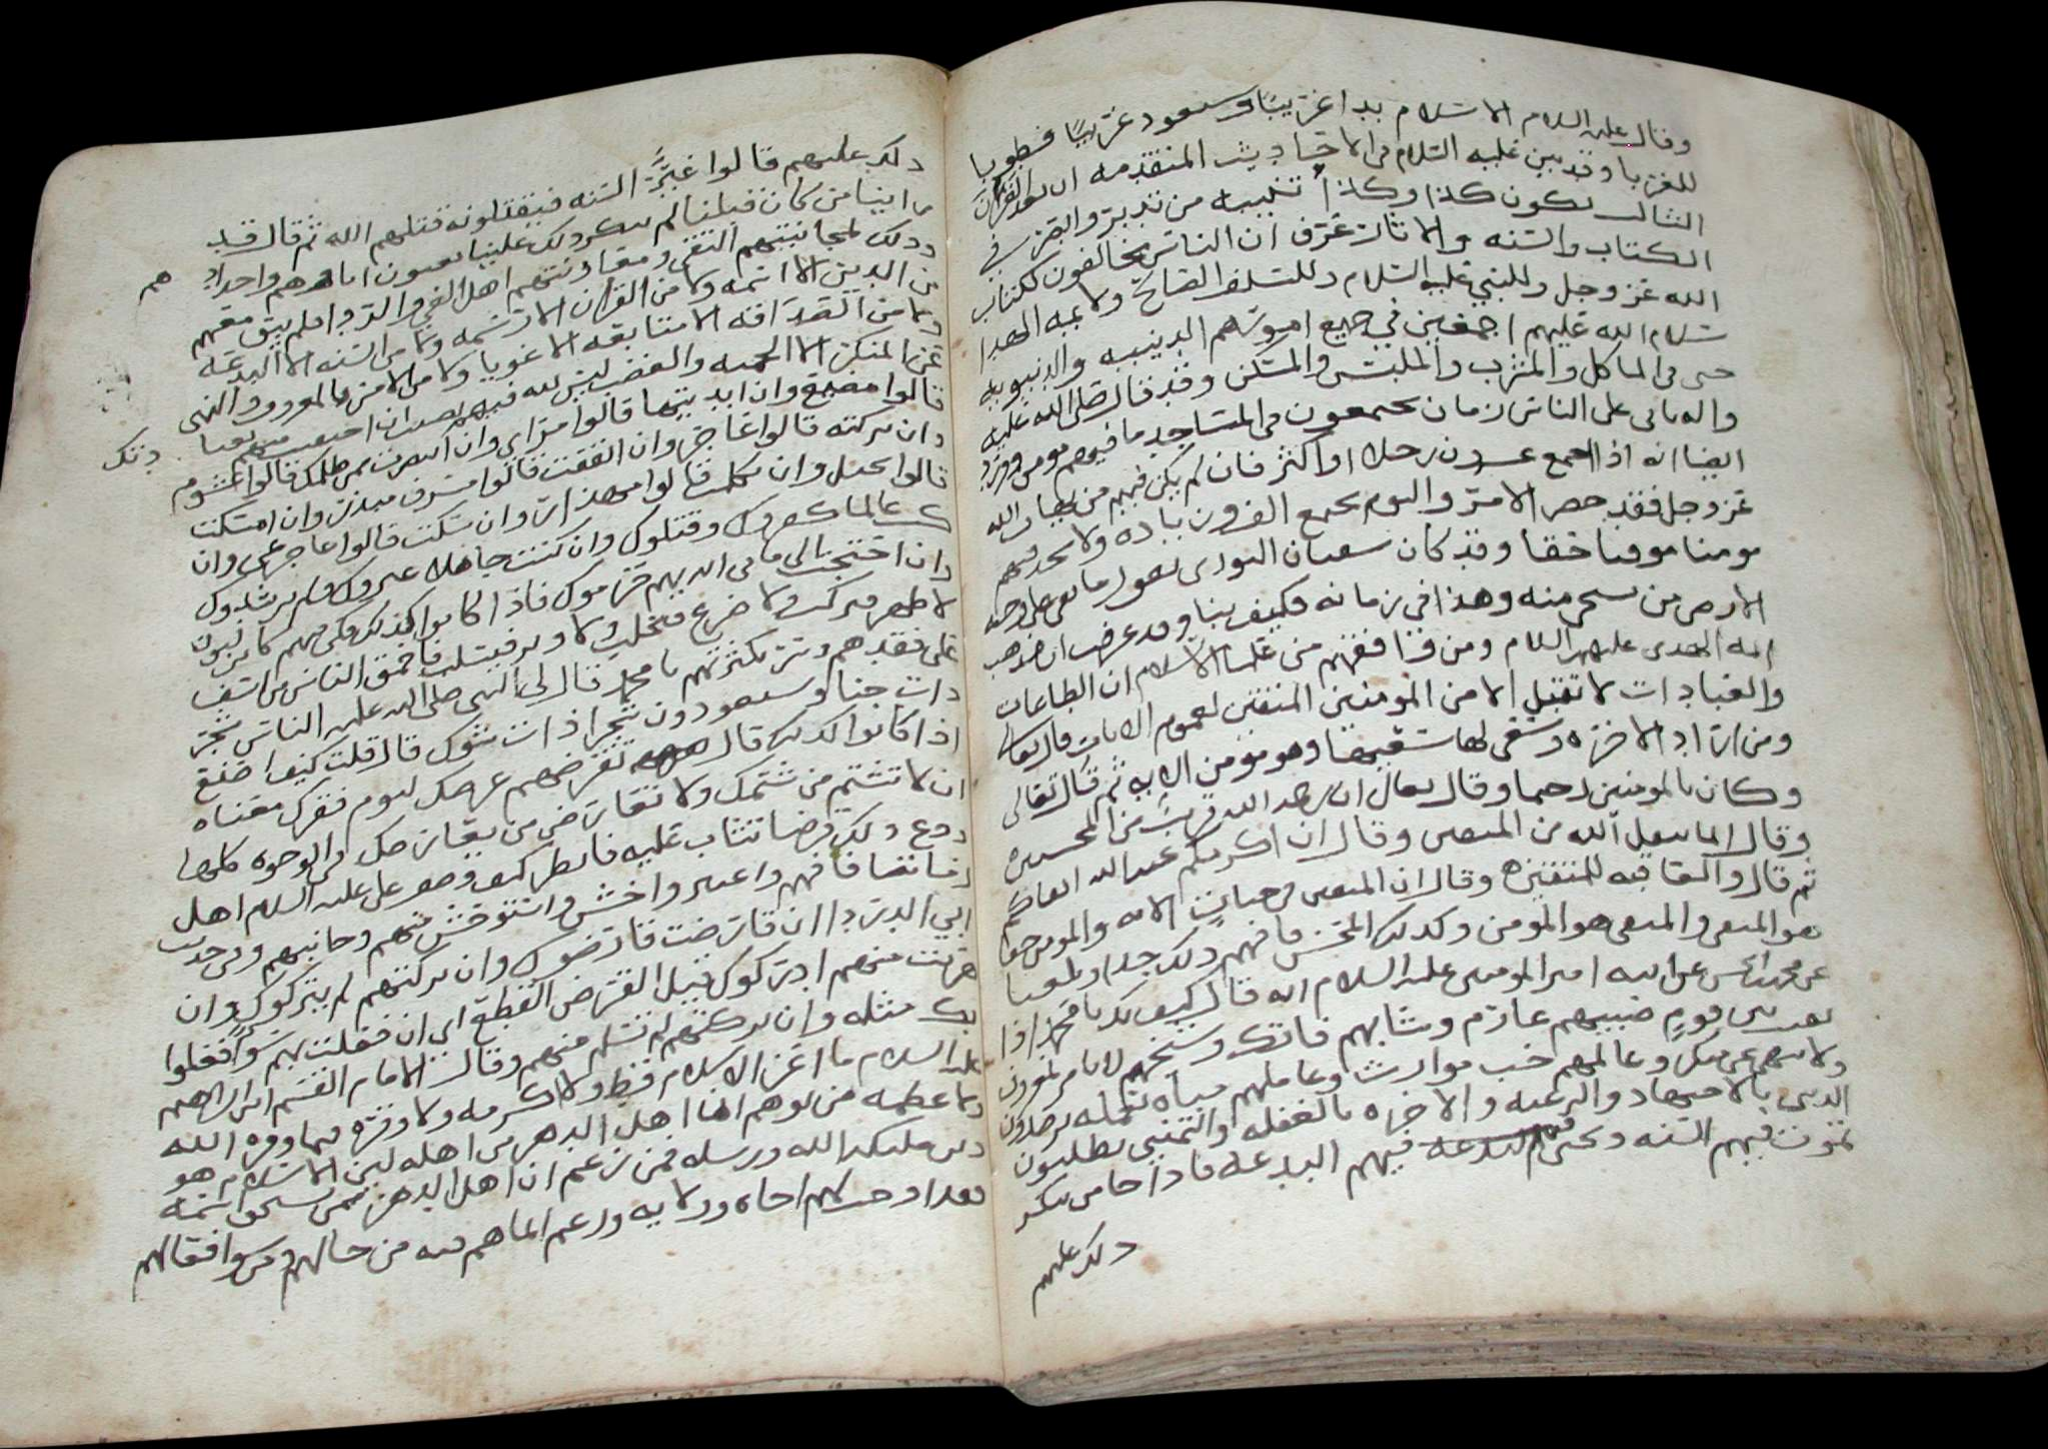 وقال عليه السلام الاسلام بدا غريبًا وسيعود غريبًا فطوبا
للغربا وقد بين عليه السلام في الاحاديث المتقدمه ان بعد القرن
الثالث يكون كذا وكذا تنبيه من تدبر والبصر في
الكتاب والسنه والاثار عرف ان الناس مخالفون لكتاب
الله عز وجل وللنبي عليه السلام وللسلف الصالح ولايمه الهدا
سلام الله عليهم اجمعين في جميع امورهم الدينيه والدنيويه
حتى في الماكل والمشرب والملبس والمسكن وقد قال صلى الله عليه
واله ياتي على الناس زمان يجتمعون في المساجد ما فيهم مومن وورد
ايضا انه اذا اجتمع عشرون رجلا او اكثر فان لم يكن فيهم من يهاب الله
عز وجل فقد حضر الامر واليوم يجتمع الف وزياده ولا تجد فيهم
مومنا موقنا حقا وقد كان سفيان الثوري يقول ما بقي على وجه
الارض من يستحى منه وهذا في زمانه فكيف بنا وقد عرف ان مذهب
ايمه الهدى عليهم السلام ومن وافقهم من علما الاسلام ان الطاعات
والعبادات لا تقبل الا من المومنين المتقين لعموم الايات قال تعالى
ومن اراد الاخره وسعى لها سعيها وهو مومن الايه ثم قال تعالى
وكان بالمومنين رحيما وقال تعالى ان رحمه الله قريب من المحسنين
وقال انما يتقبل الله من المتقين وقال ان اكرمكم عند الله اتقاكم
ثم قال والعاقبه للمتقين وقال ان المتقين في جنات الايه والمومن هو
هو المتقي والمتقي هو المومن وكذلك المحسن فافهم ذلك جدا
عن محمد بن الحسن عن ابيه امير المومنين عليه السلام انه قال كيف بك يا محمد اذا
بقيت في قوم صبيهم عارم وشابهم فاتك وشيخهم لا يامر بمعروف
ولا ينهى عن منكر وعالمهم خب موارب وعاملهم
الدنيا بالاجتهاد والرغبه والاخره بالغفله والتمني يطلبون
تموت فيهم السنه وتحيى فيهم البدعه فاذا جا من ينكر
ذلك عليهم
ذلك عليهم قالوا غيَّر السنه فيقتلونه قتلهم الله ثم قال قد
راينا من كان قبلنا لم ينكر ذلك علينا يعنون اباهم هم واجداد هم
وذلك لمجانبتهم التقى ومعاونتهم اهل الغي والردا فلم يبق معهم
من الدين الا اسمه ولا من القران الا رسمه ولا من السنه الا البدعه
ولا من الصداقه الا متابعه الاغويا ولا من الامر بالمعروف والنهي
عن المنكر الا الحميه والغضب ليس لله فيه
قالوا مضيع وان ابديتها قالوا مراي وان انتصرت ممن ظلمك قالوا غشوم
وان تركته قالوا عاجز وان انفقت قالوا مسرف مبذر وان امسكت
قالوا بخيل وان تكلمت قالوا مهذار وان سكت قالوا عاجز عي وان
كنت عالما كفروك وقتلوك وان كنت جاهلا عيروك ولم يرشدوك
وان احتجت الى ما في ايديهم حرموك فاذا كانوا كذلك فكن فيهم كابن لبون
لا ظهر فيركب ولا ضرع فيحلب ولا وبر فيسلب فاحمق الناس من اسف
على فقدهم وسر بكثرتهم يا محمد قال لي النبي صلى الله عليه الناس شجر
ذات جنا وسيعودون شجرا ذات شوك قال قلت كيف اصنع
اذا كانوا كذلك قال تقرضهم عرضك ليوم فقرك معناه
ان لا تشتم من شتمك ولا تعارض من يعارضك والوجوه كلها
ودع ذلك قرضا تثاب عليه فانظر كيف وصف علي عليه السلام اهل
زماننا فافهم واعتبر واخش واستوحش منهم وجانبهم وفي حديث
ابي الدردا ان قارضت قارضوك وان تركتهم لم يتركوك وان
هربت منهم ادركوك قيل القرض القطع اي ان فعلت بهم سوًا فعلوا
بك مثله وان تركتهم لم تسلم منهم وقال الامام القسم ابن ابراهيم
عليه السلام ما اعز الاسلام قط ولا اكرمه ولا وقره فيما وقره الله
ولا عظمه من توهم ان اهل الدهر من اهله لبن الاسلام هو
دين مليكه الله ورسله فمن زعم ان اهل الدهر ممن يستحق اسمه
فقد اوجب لهم اخاه وولايه وزعم انما هم فيه من حالهم وسوافعالهم